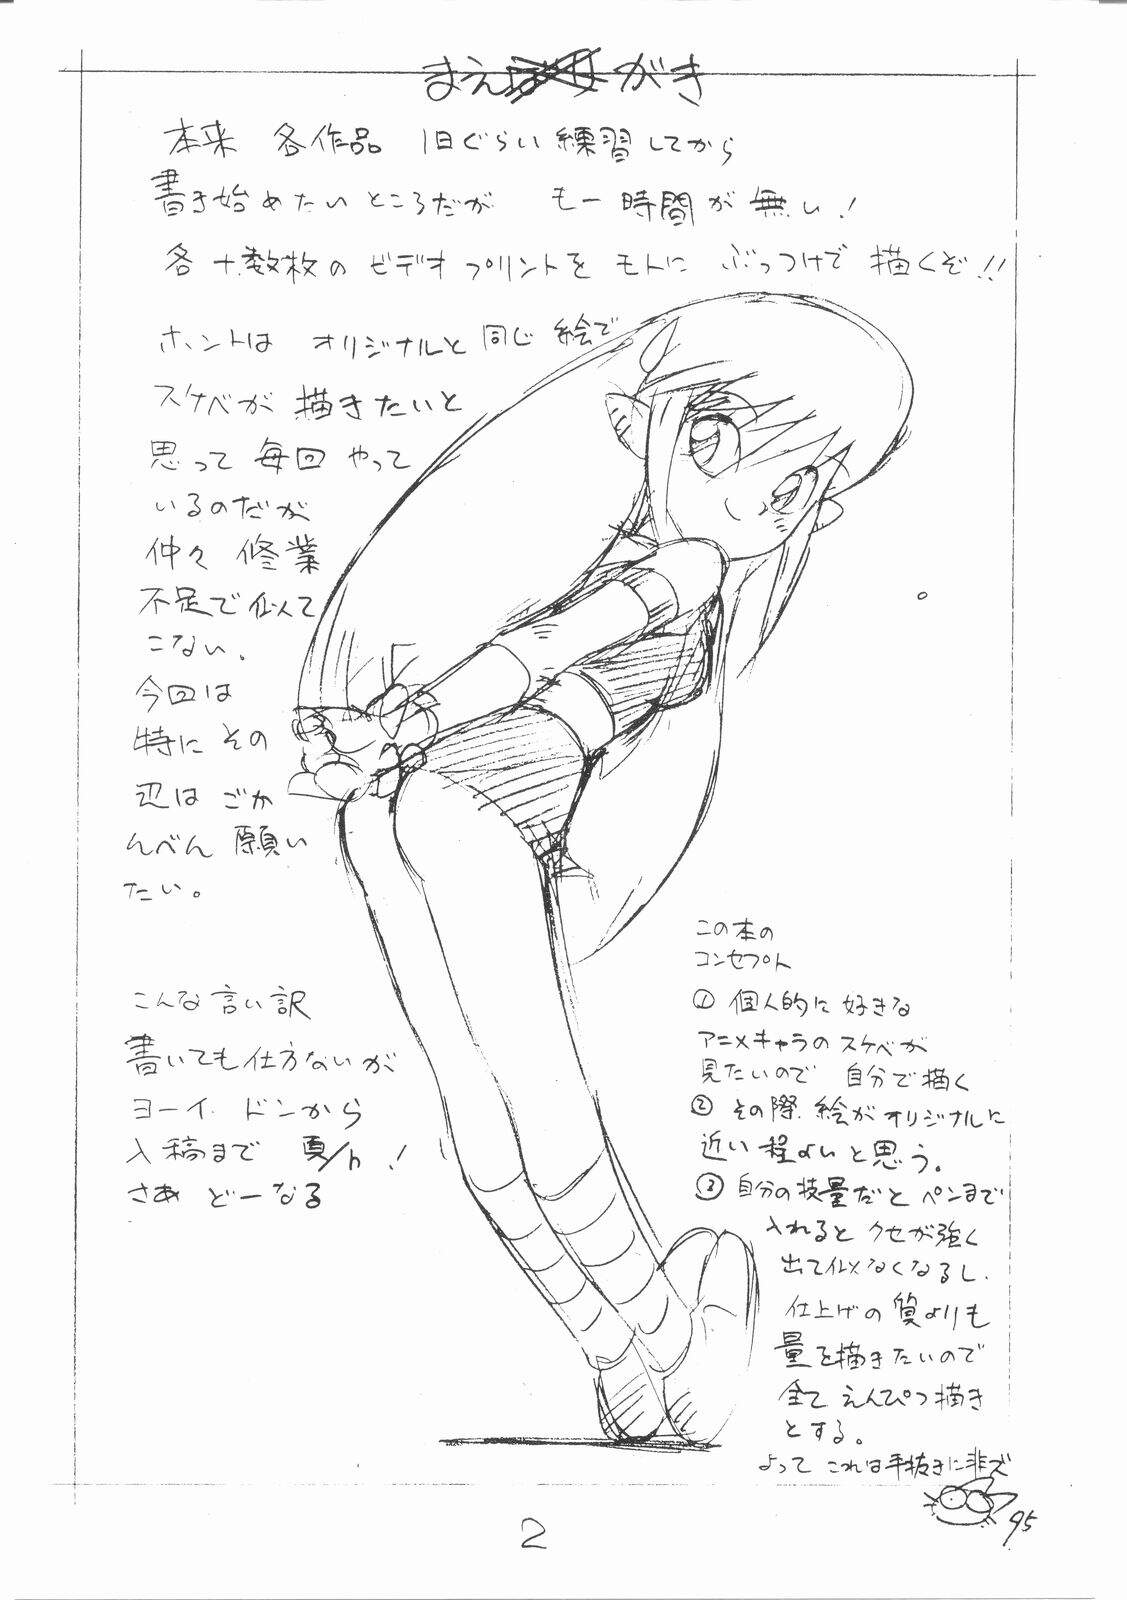 まえがき
本来 各作品 1日ぐらい練習してから
書き始めたいところだが もー時間が無い!
各十数枚のビデオプリントをモトに ぶっつけで描くぞ!!
ホントは オリジナルと同じ絵で
スケベが描きたいと
思って毎回やって
いるのだが
仲々 修業
不足で似て
こない。
今回は
特にその
辺はごか
んべん願い
たい。
こんな言い訳
書いても仕方ないが
ヨーイ ドンから
入稿まで!
さあ どーなる
この本の
コンセプト
① 個人的に好きな
アニメキャラのスケベが
見たいので 自分で描く
② その際 絵がオリジナルに
近い程よいと思う。
③ 自分の技量だとペンまで
入れるとクセが強く
出て似なくなるし、
仕上げの質よりも
量を描きたいので
全てえんぴつ描き
とする。
よって これは手抜きに非ズ
95
2